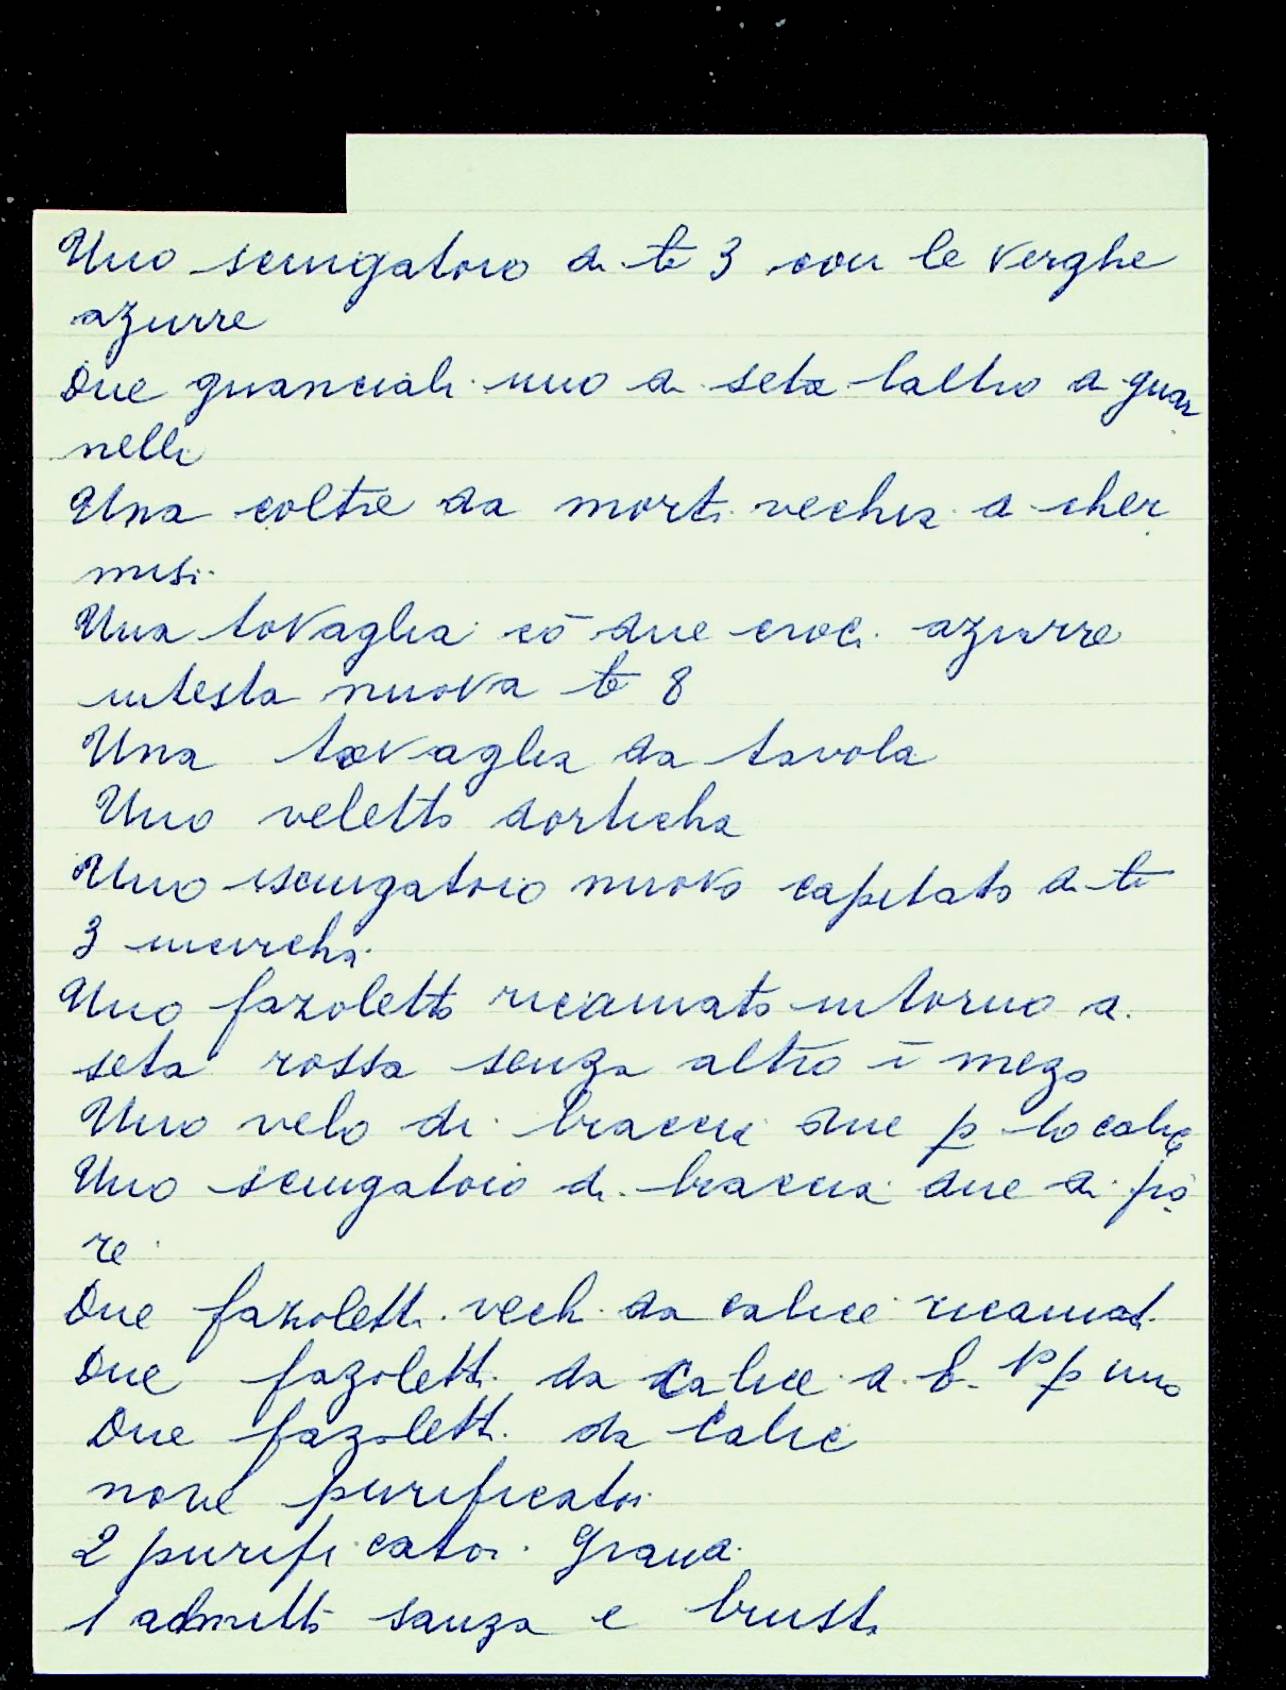 Uno sciugatoio di tē 3 con le verghe
azurre
Due guanciali uno di seta laltro di guar
nelli
Una coltre da morti vechia di cher
misi
Una tovaglia cō due croci azurre
intesta nuova tē 8
Una tovaglia da tavola
Uno veletto dorticha
Uno isciugatoio nuovo capitato di tē
3 incircha
Uno fazoletto ricamato intorno di
seta rossa senza altro ī mezo
Uno velo di braccia due p lo calice
Uno sciugatoio di braccia due di fio
re
Due fazoletti vechi da calice ricamati
Due fazoletti da calice a p uno
Due fazoletti da calice
nove purificatoi
2 purificatoi grandi
1 sanza e